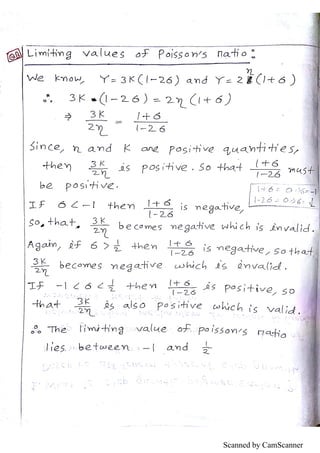 Q8 Limiting values of Poisson's ratio :
We know, Y = 3K(1-2σ) and Y = 2η(1+σ)
∴ 3K (1-2σ) = 2η (1+σ)
⇒ 3K/2η = 1+σ/1-2σ
Since, η and K are positive quantities,
then 3K/2η is positive. So that 1+σ/1-2σ must
be positive.
1+σ = 0 ∴ σ = -1
1-2σ = 0 ∴ σ = 1/2
If σ < -1 then 1+σ/1-2σ is negative,
so, that, 3K/2η becomes negative which is invalid.
Again, if σ > 1/2 then 1+σ/1-2σ is negative, so that
3K/2η becomes negative which is invalid.
If -1 < σ < 1/2 then 1+σ/1-2σ is positive, so
that 3K/2η is also positive which is valid.
∴ The limiting value of poisson's ratio
lies between -1 and 1/2
Scanned by CamScanner